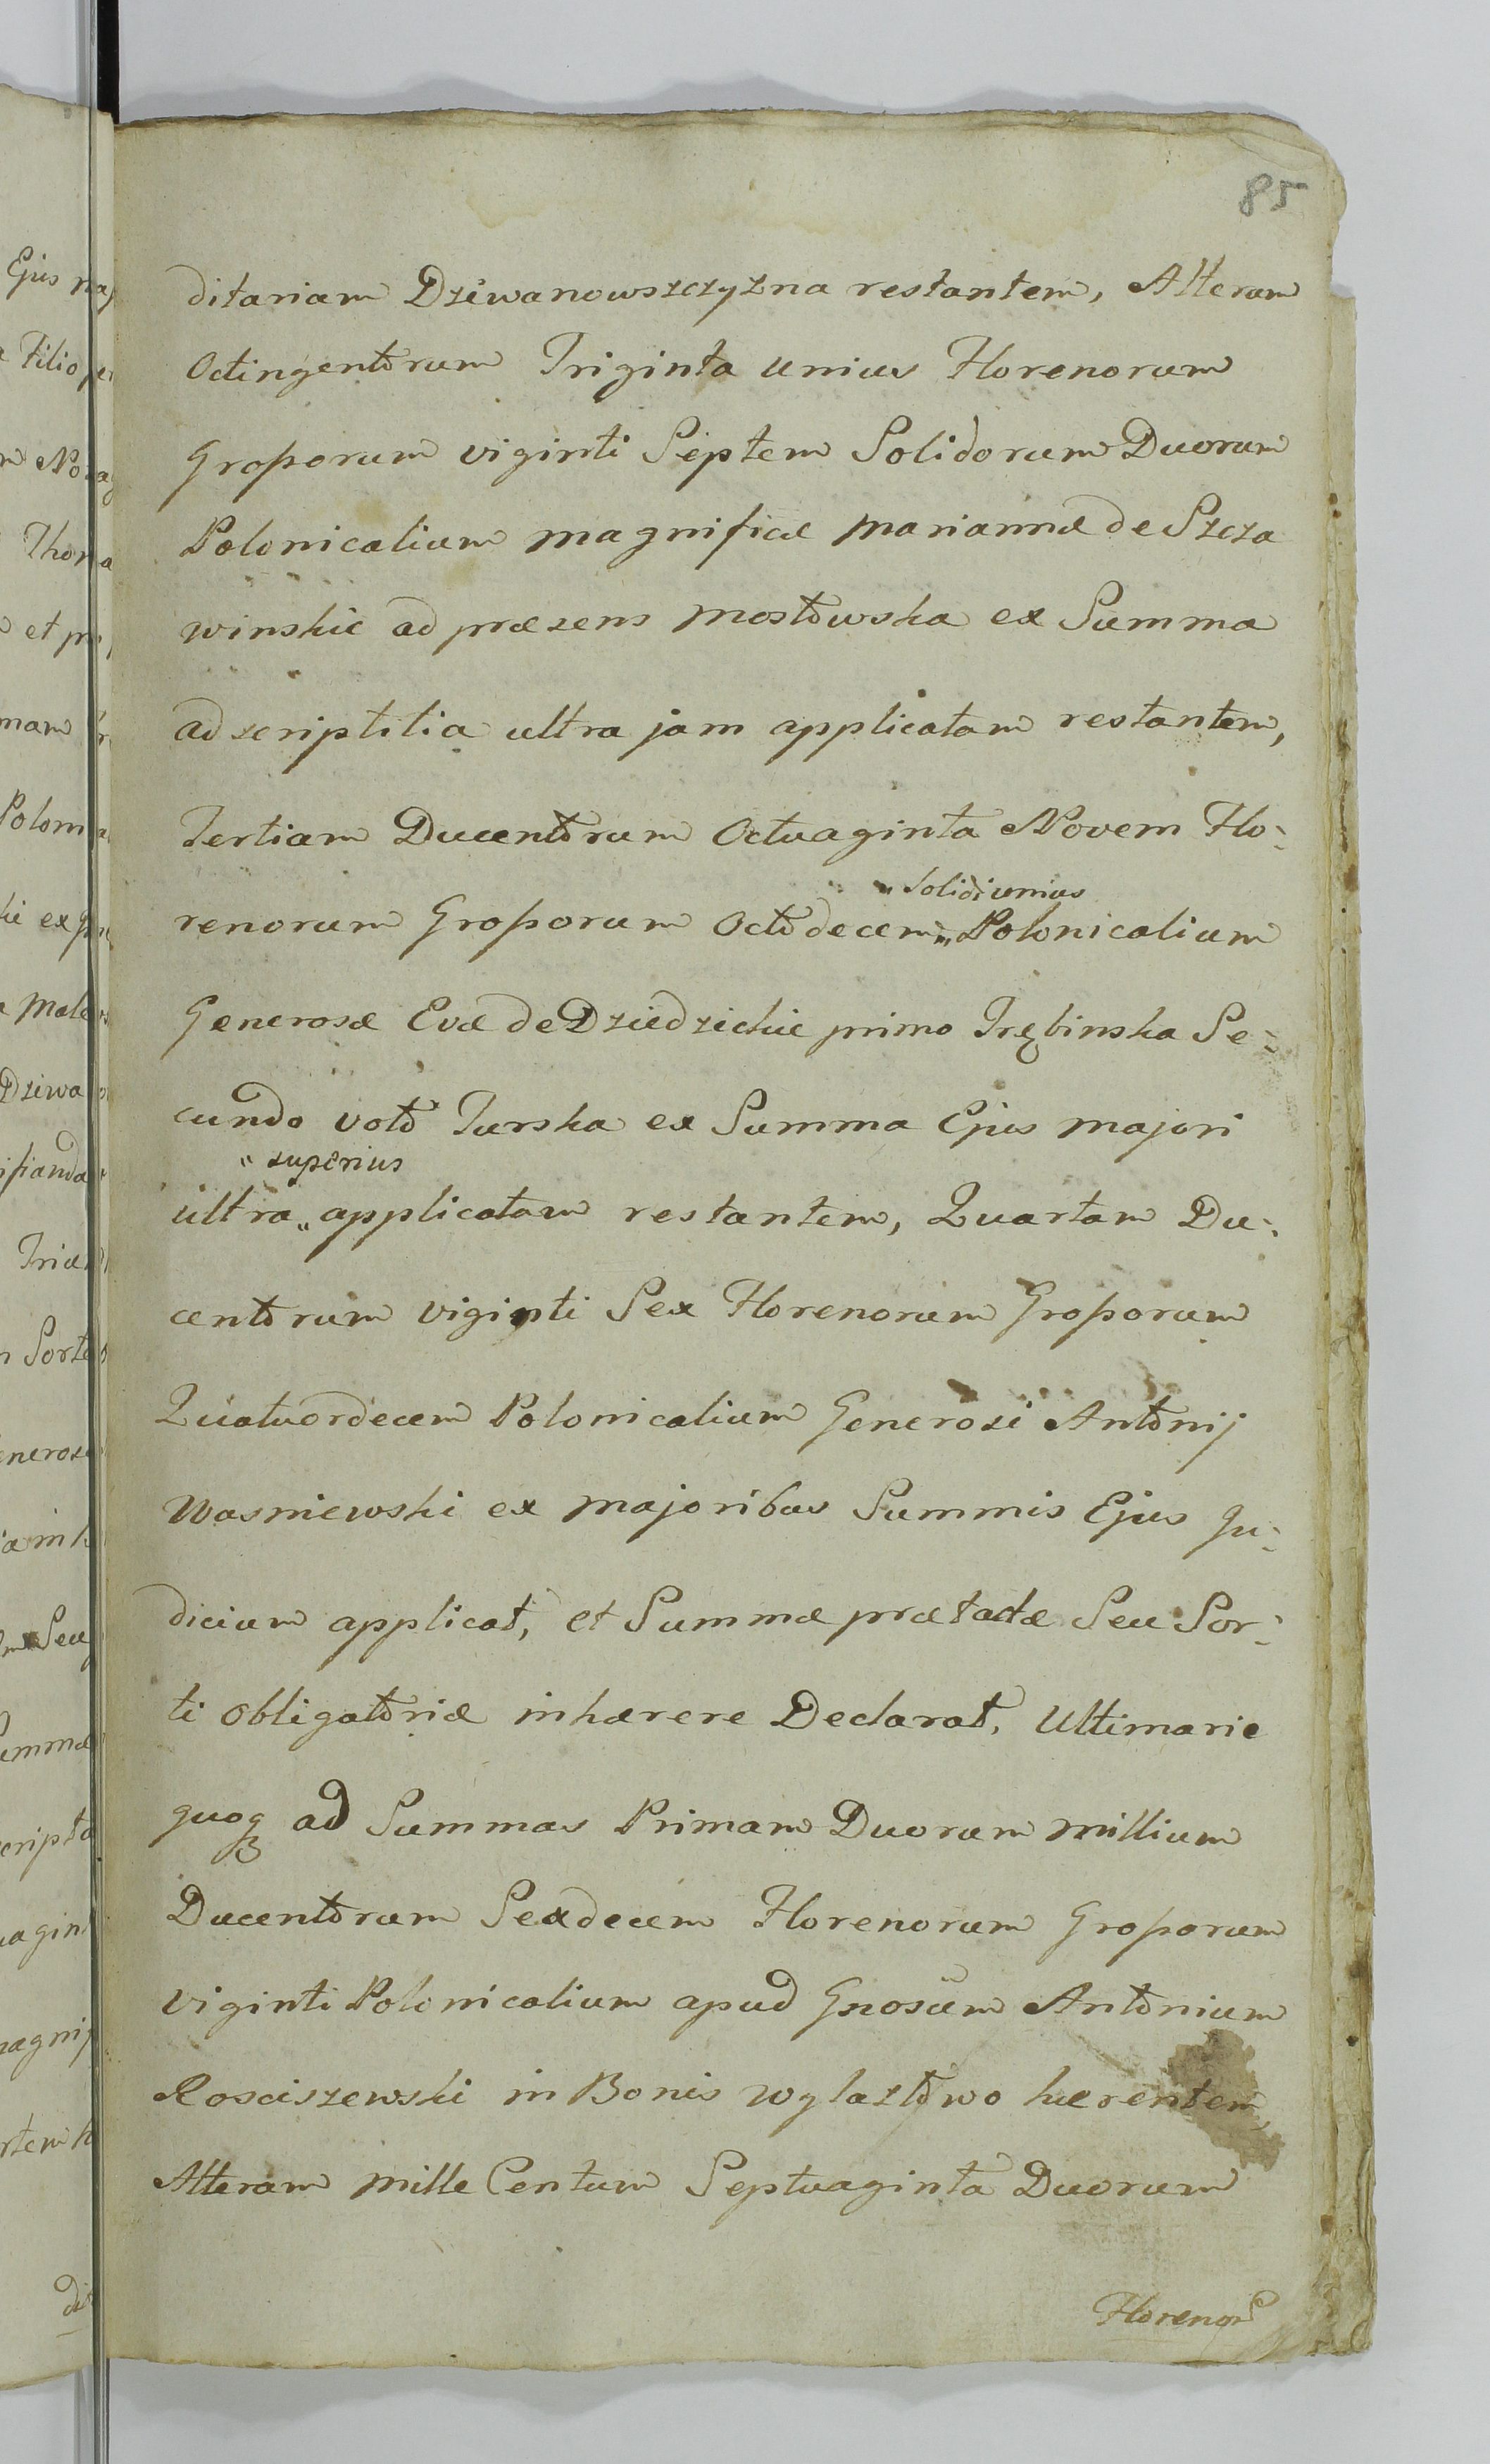 85
ditariam Dziwanowszczyzna restantem, Alteram
Octingentorum Triginta unius Florenorum
Grossorum viginti Septem Solidorum Duorum
Polonicalium Magnificæ Mariannæ de Szcza
winskie ad præsens Mostowska ex Summa
adscriptitia ultra jam applicatam restantem,
Tertiam Ducentorum Octuaginta Novem Flo:
" Solidi unius
renorum Grossorum Octodecem „ Polonicalium
Generosæ Evæ de Dziedzickie primo Trębinska Se:
cundo voto Turska ex Summa Ejus majori
" superius
ultra „ applicatam restantem, Quartam Du:
centorum viginti Sex Florenorum Grossorum
Quatuordecem Polonicalium Generosi Antonij
Wasniewski ex majoribus Summis Ejus Ju:
dicium applicat, et Summæ prætactæ Seu Sor:
ti obligatoriæ inhærere Declarat, Ultimarie
quoqꝫ ad Summas Primam Duorum millium
Ducentorum Sexdecem Florenorum Grossorum
viginti Polonicalium apud Gnosum Antonium
Rosciszewski in Bonis Wylaztowo hærentem,
Alteram mille Centum Septuaginta Duorum
Florenor
Ejus
Filio
Thoma
et
ex
Dziwa
Sorte
Seu